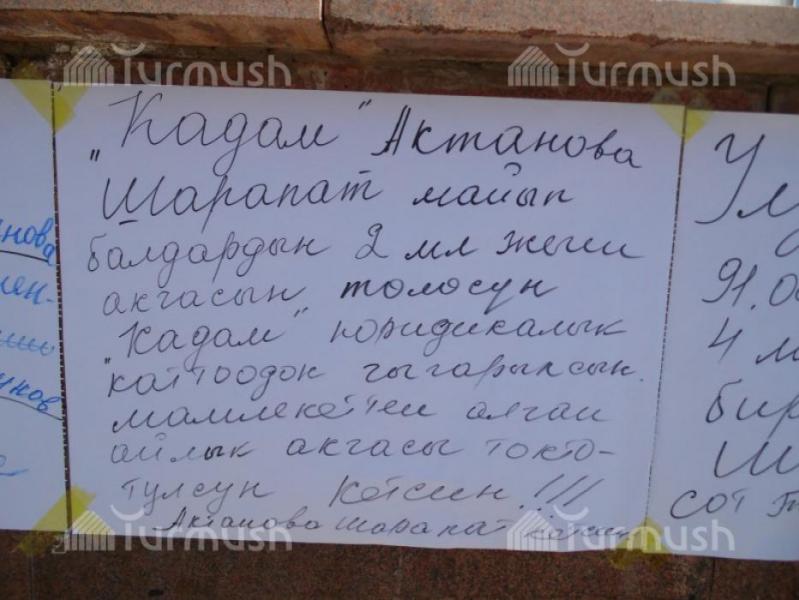 Turmush Turmush
„Кадам" Актанова
Шарапат майып
балдардын 2 мл жеген
акчасын толосун
„Кадам" юридикалык
каттоодон чыгарылсын.
мамлекеттен алган
айлык акчасы токто-
тулсун Кетсин!!!
Актанова Шарапат кетсин
нова
мен-
унов
Ул
91.00
4 м
бир
Ш
сот
Turmush Turmush